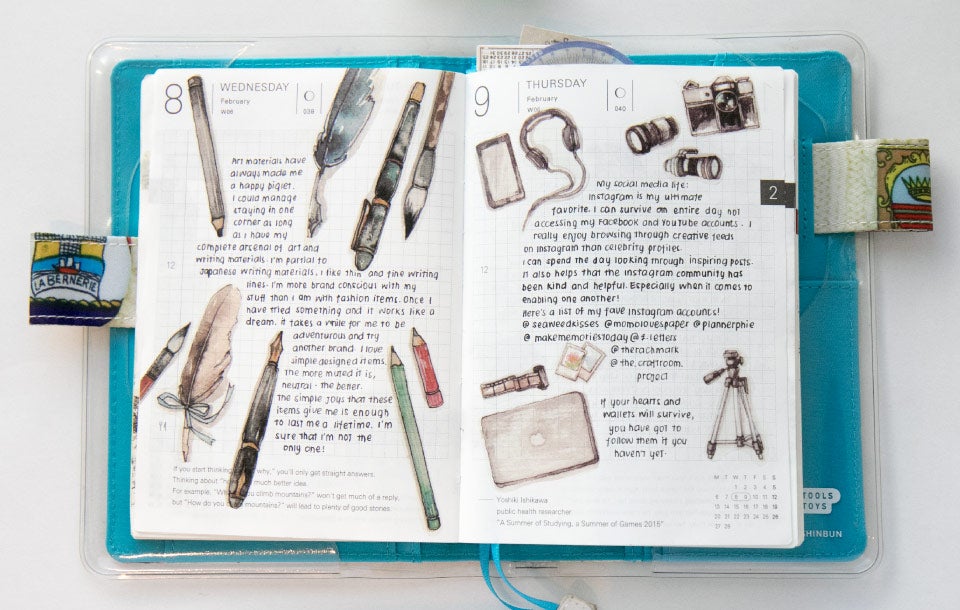 8
WEDNESDAY
February
W06
039
Art materials have
always made me
a happy piglet.
I could manage
staying in one
corner as long
as I have my
complete arsenal of art and
writing materials. I'm partial to
Japanese writing materials. I like thin and fine writing
lines. I'm more brand conscious with my
stuff than I am with fashion items. Once I
have tried something and it works like a
dream. It takes a while for me to be
adventurous and try
another brand. I love
simple designed items.
The more muted it is,
neutral - the better.
The simple joys that these
items give me is enough
to last me a lifetime. I'm
sure that I'm not the
only one!
12
If you start thinking why," you'll only get straight answers.
Thinking about "how much better idea.
For example, "Wh you climb mountains?" won't get much of a reply,
but "How do you mountains?" will lead to plenty of good stories.
LA BERNERIE
9
THURSDAY
February
W06
040
2
My social media life:
Instagram is my ultimate
favorite. I can survive an entire day not
accessing my Facebook and YouTube accounts. I
really enjoy browsing through creative feeds
on Instagram than celebrity profiles.
I can spend the day looking through inspiring posts.
It also helps that the Instagram community has
been kind and helpful. Especially when it comes to
enabling one another!
Here's a list of my fave Instagram accounts!
@seaweedkisses @momolovespaper @plannerphie
@makememoriestoday @f.letters
@therachmark
@the.craftroom.
project
If your hearts and
wallets will survive,
you have got to
follow them if you
haven't yet.
12
Yoshiki Ishikawa
public health researcher
"A Summer of Studying, a Summer of Games 2015"
M T W T F S S
1 2 3 4 5
6 7 8 9 10 11 12
13 14 15 16 17 18 19
20 21 22 23 24 25 26
27 28
TOOLS
TOYS
SHINBUN